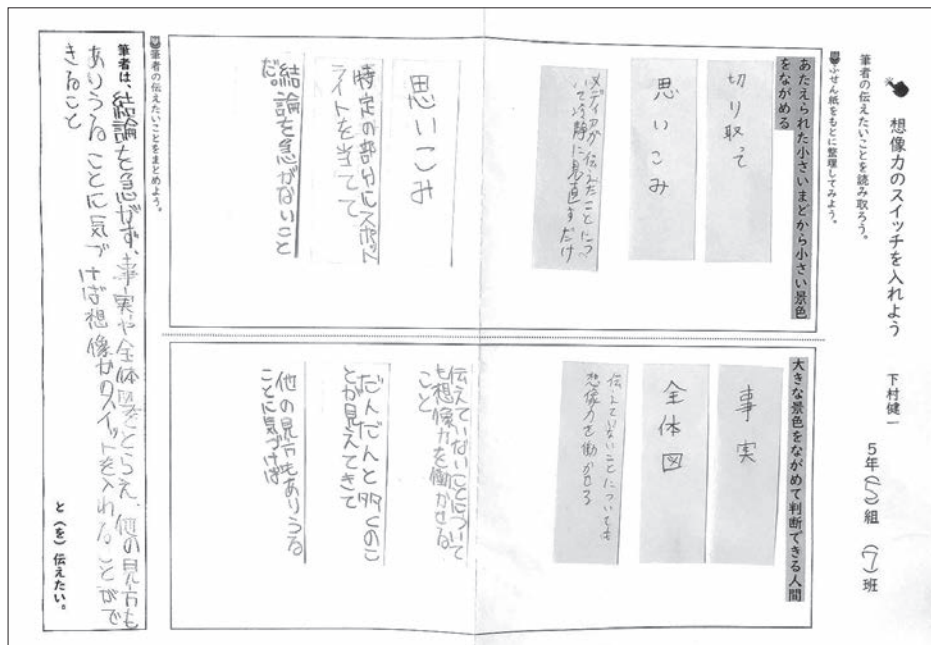 想像力のスイッチを入れよう　下村健一
5年(い)組　(7)班
筆者の伝えたいことを読み取ろう。
ふせん紙をもとに整理してみよう。
あたえられた小さいまどから小さい景色
をながめる
切り取って
思いこみ
メディアが伝えたことにつ
いて冷静に見直すだけ
思いこみ
特定の部分にスポット
ライトを当てて
結論を急がないこと
だ。
大きな景色をながめて判断できる人間
事実
全体図
伝えていないことについても
想像力を働かせる
伝えていないことについて
も想像力を働かせる
こと
だんだんと多くのこ
とが見えてきて
他の見方もありうる
ことに気づけば
筆者の伝えたいことをまとめよう。
筆者は、結論を急がず、事実や全体図をとらえ、他の見方も
ありうることに気づけば想像力のスイットを入れることがで
きること
と（を）伝えたい。